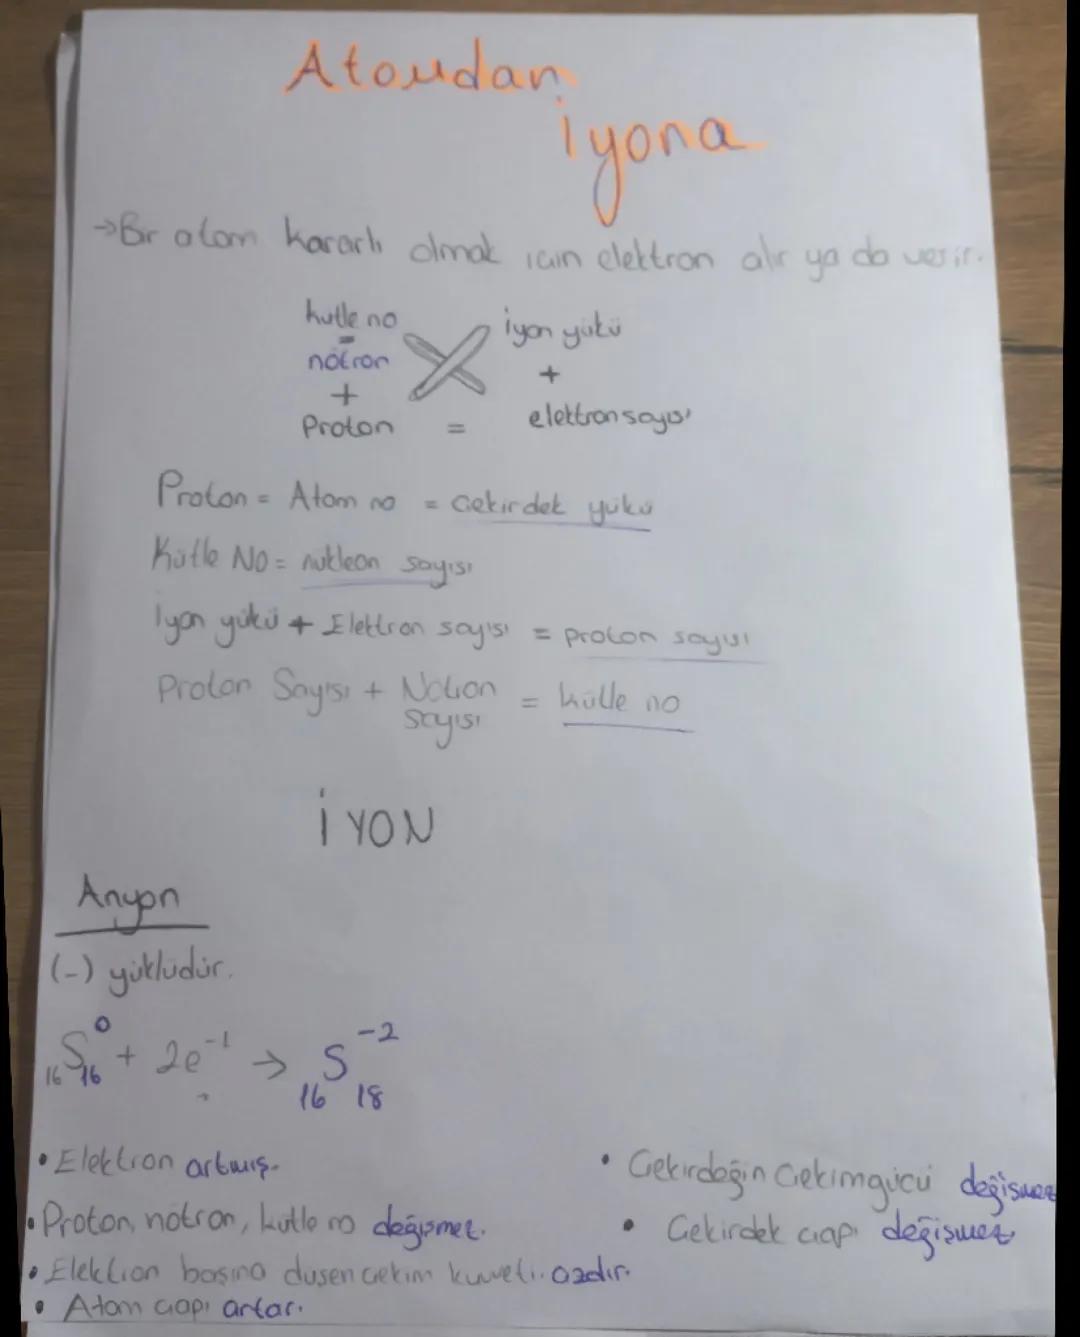 Atomdan
iyona
→Bir atom kararlı olmak için elektron alır ya da verir.
kutle no iyon yükü
=
nötron +
+
Proton = elektron sayısı
Proton = Atom no = Çekirdek yükü
Kütle No = nükleon sayısı
İyon yükü + Elektron sayısı = proton sayısı
Proton Sayısı + Nötron = kütle no
sayısı
İYON
Anyon
(-) yüklüdür.
₁₆S₁₆⁰ + 2e⁻¹ → ₁₆S₁₈⁻²
• Elektron artmış. • Çekirdeğin Çekimgücü değişmez
• Proton, nötron, kütle no değişmez. • Çekirdek çapı değişmez
• Elektron başına düsen çekim kuvveti azdır.
• Atom çapı artar.